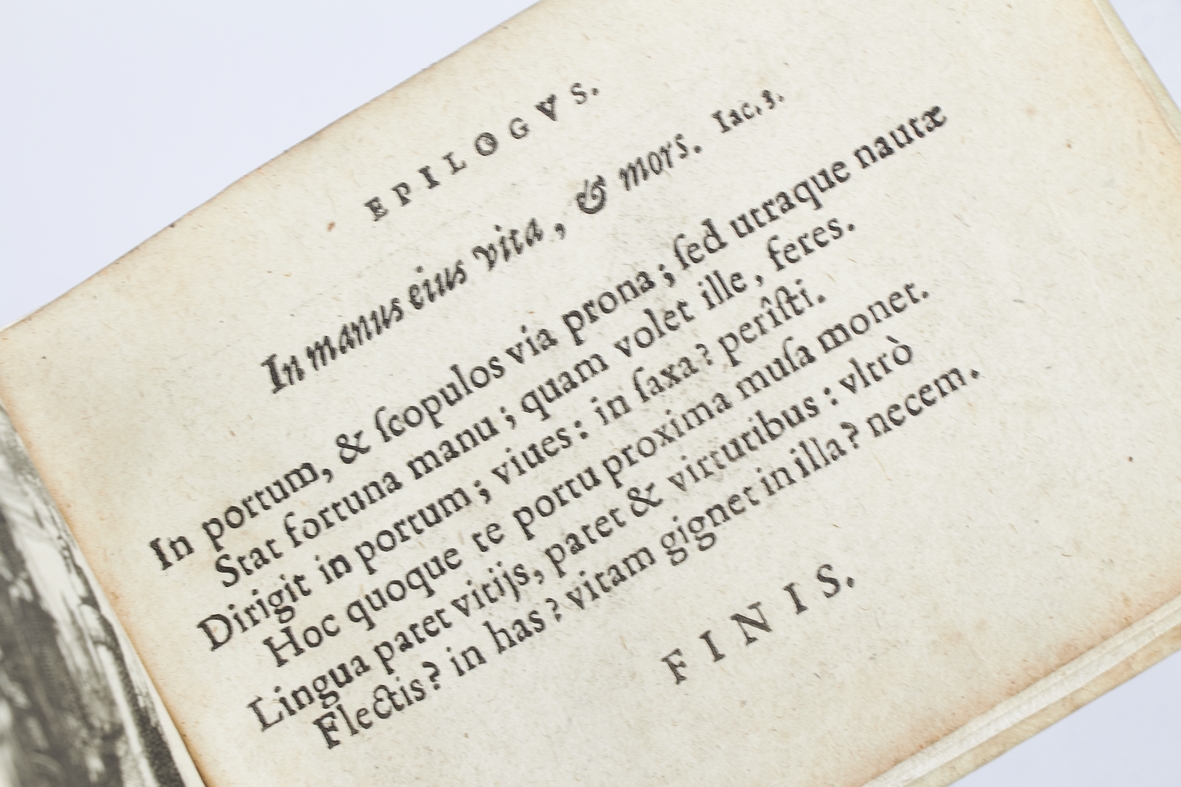 EPILOGVS.
In manus eius vita, & mors. Iac. 3.
In portum, & ſcopulos via prona; ſed utraque nautæ
Stat fortuna manu; quam volet ille, feres.
Dirigit in portum; viues: in ſaxa? perîſti.
Hoc quoque te portu proxima muſa monet.
Lingua patet vitijs, patet & virtutibus: vltrò
Flectis? in has? vitam gignet in illa? necem.
FINIS.